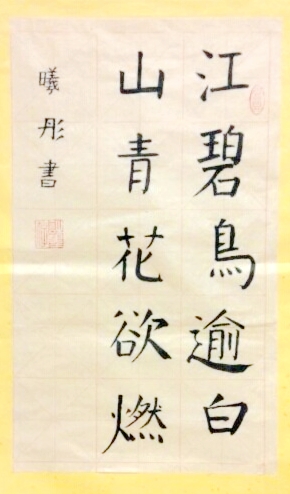 江碧鳥逾白
山青花欲燃
曦彤書